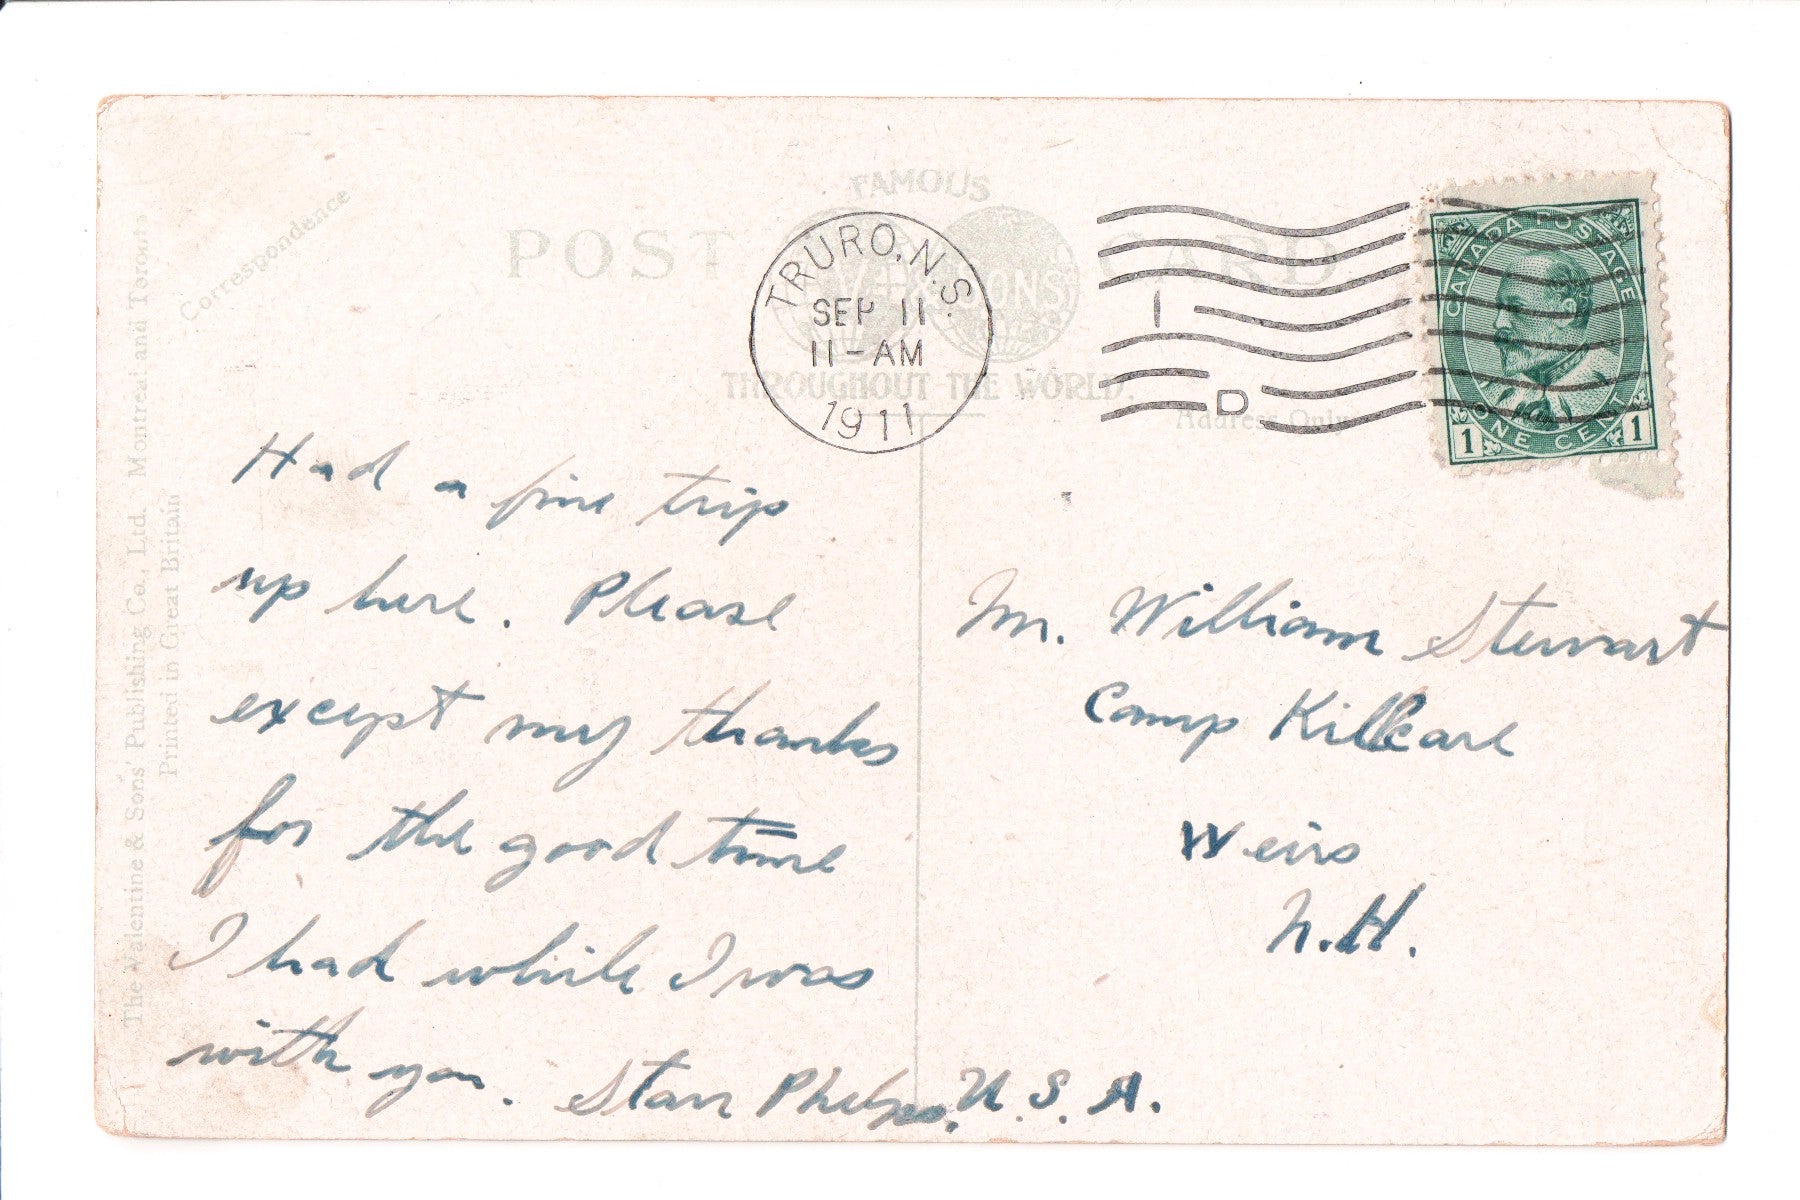 Correspondence
FAMOUS
POST CARD
& SONS
THROUGHOUT THE WORLD.
Address Only
TRURO, N.S.
SEP 11
11-AM
1911
1
D
CANADA POSTAGE
ONE CENT
1 1
The Valentine & Sons' Publishing Co., Ltd. Montreal and Toronto
Printed in Great Britain
Had a fine trip
up here. Please
except my thanks
for the good time
I had while I was
with you. Starr Phelps.
Mr. William Stewart
Camp Killcare
Weirs
N.H.
U.S.A.